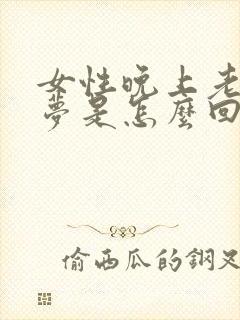 女性晚上老
夢是怎麼回
偷西瓜的鋼叉